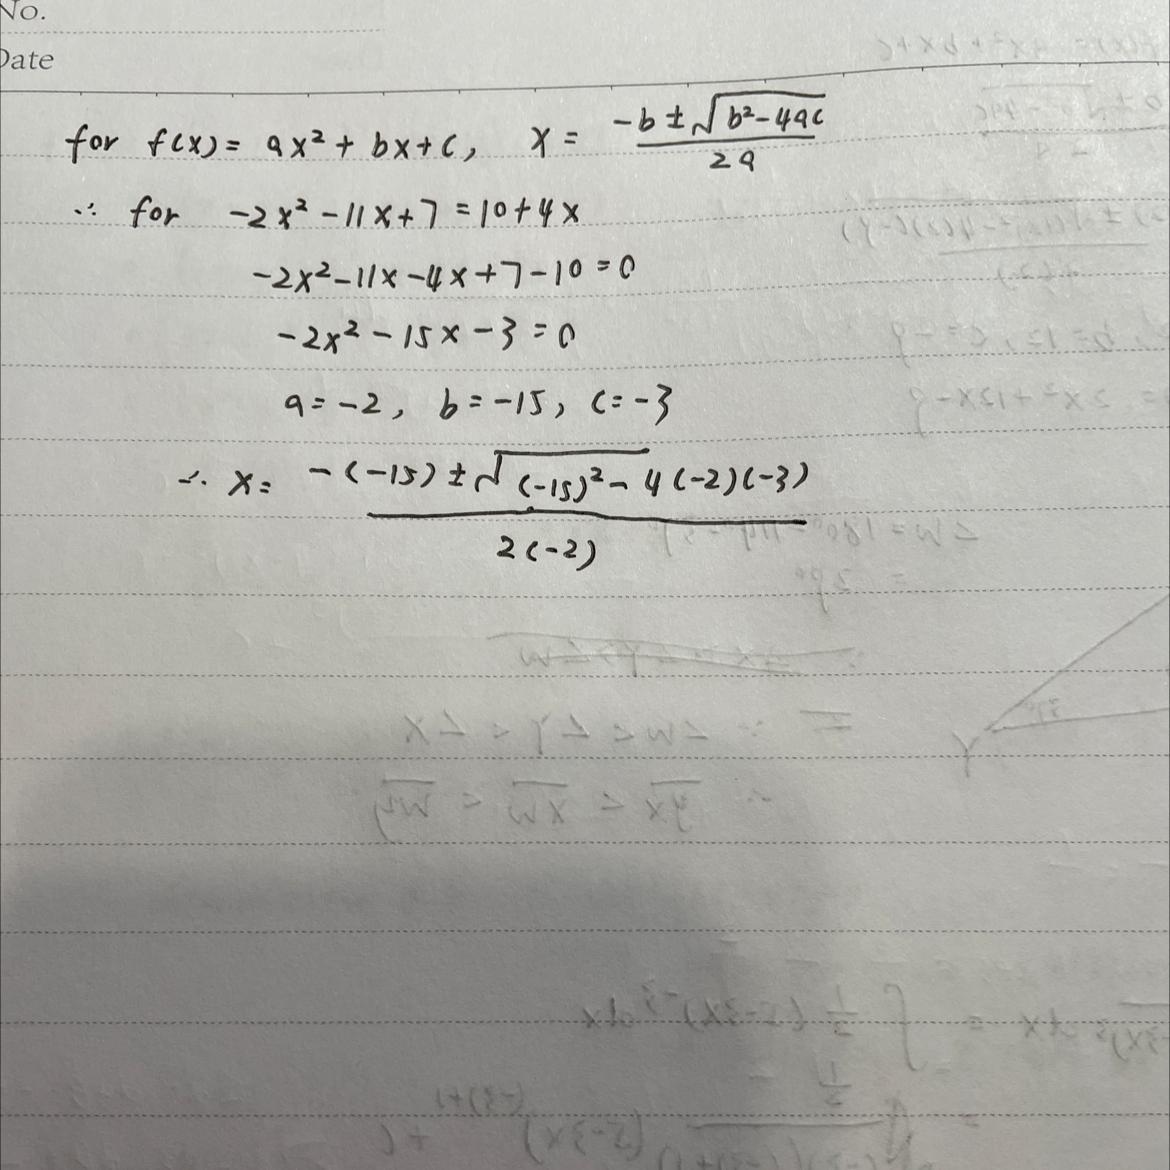 No.
Date
for f(x) = ax² + bx + c, x = (-b ± √(b² - 4ac)) / 2a
∴ for -2x² - 11x + 7 = 10 + 4x
-2x² - 11x - 4x + 7 - 10 = 0
-2x² - 15x - 3 = 0
a = -2, b = -15, c = -3
∴ x = (-(-15) ± √((-15)² - 4(-2)(-3))) / 2(-2)